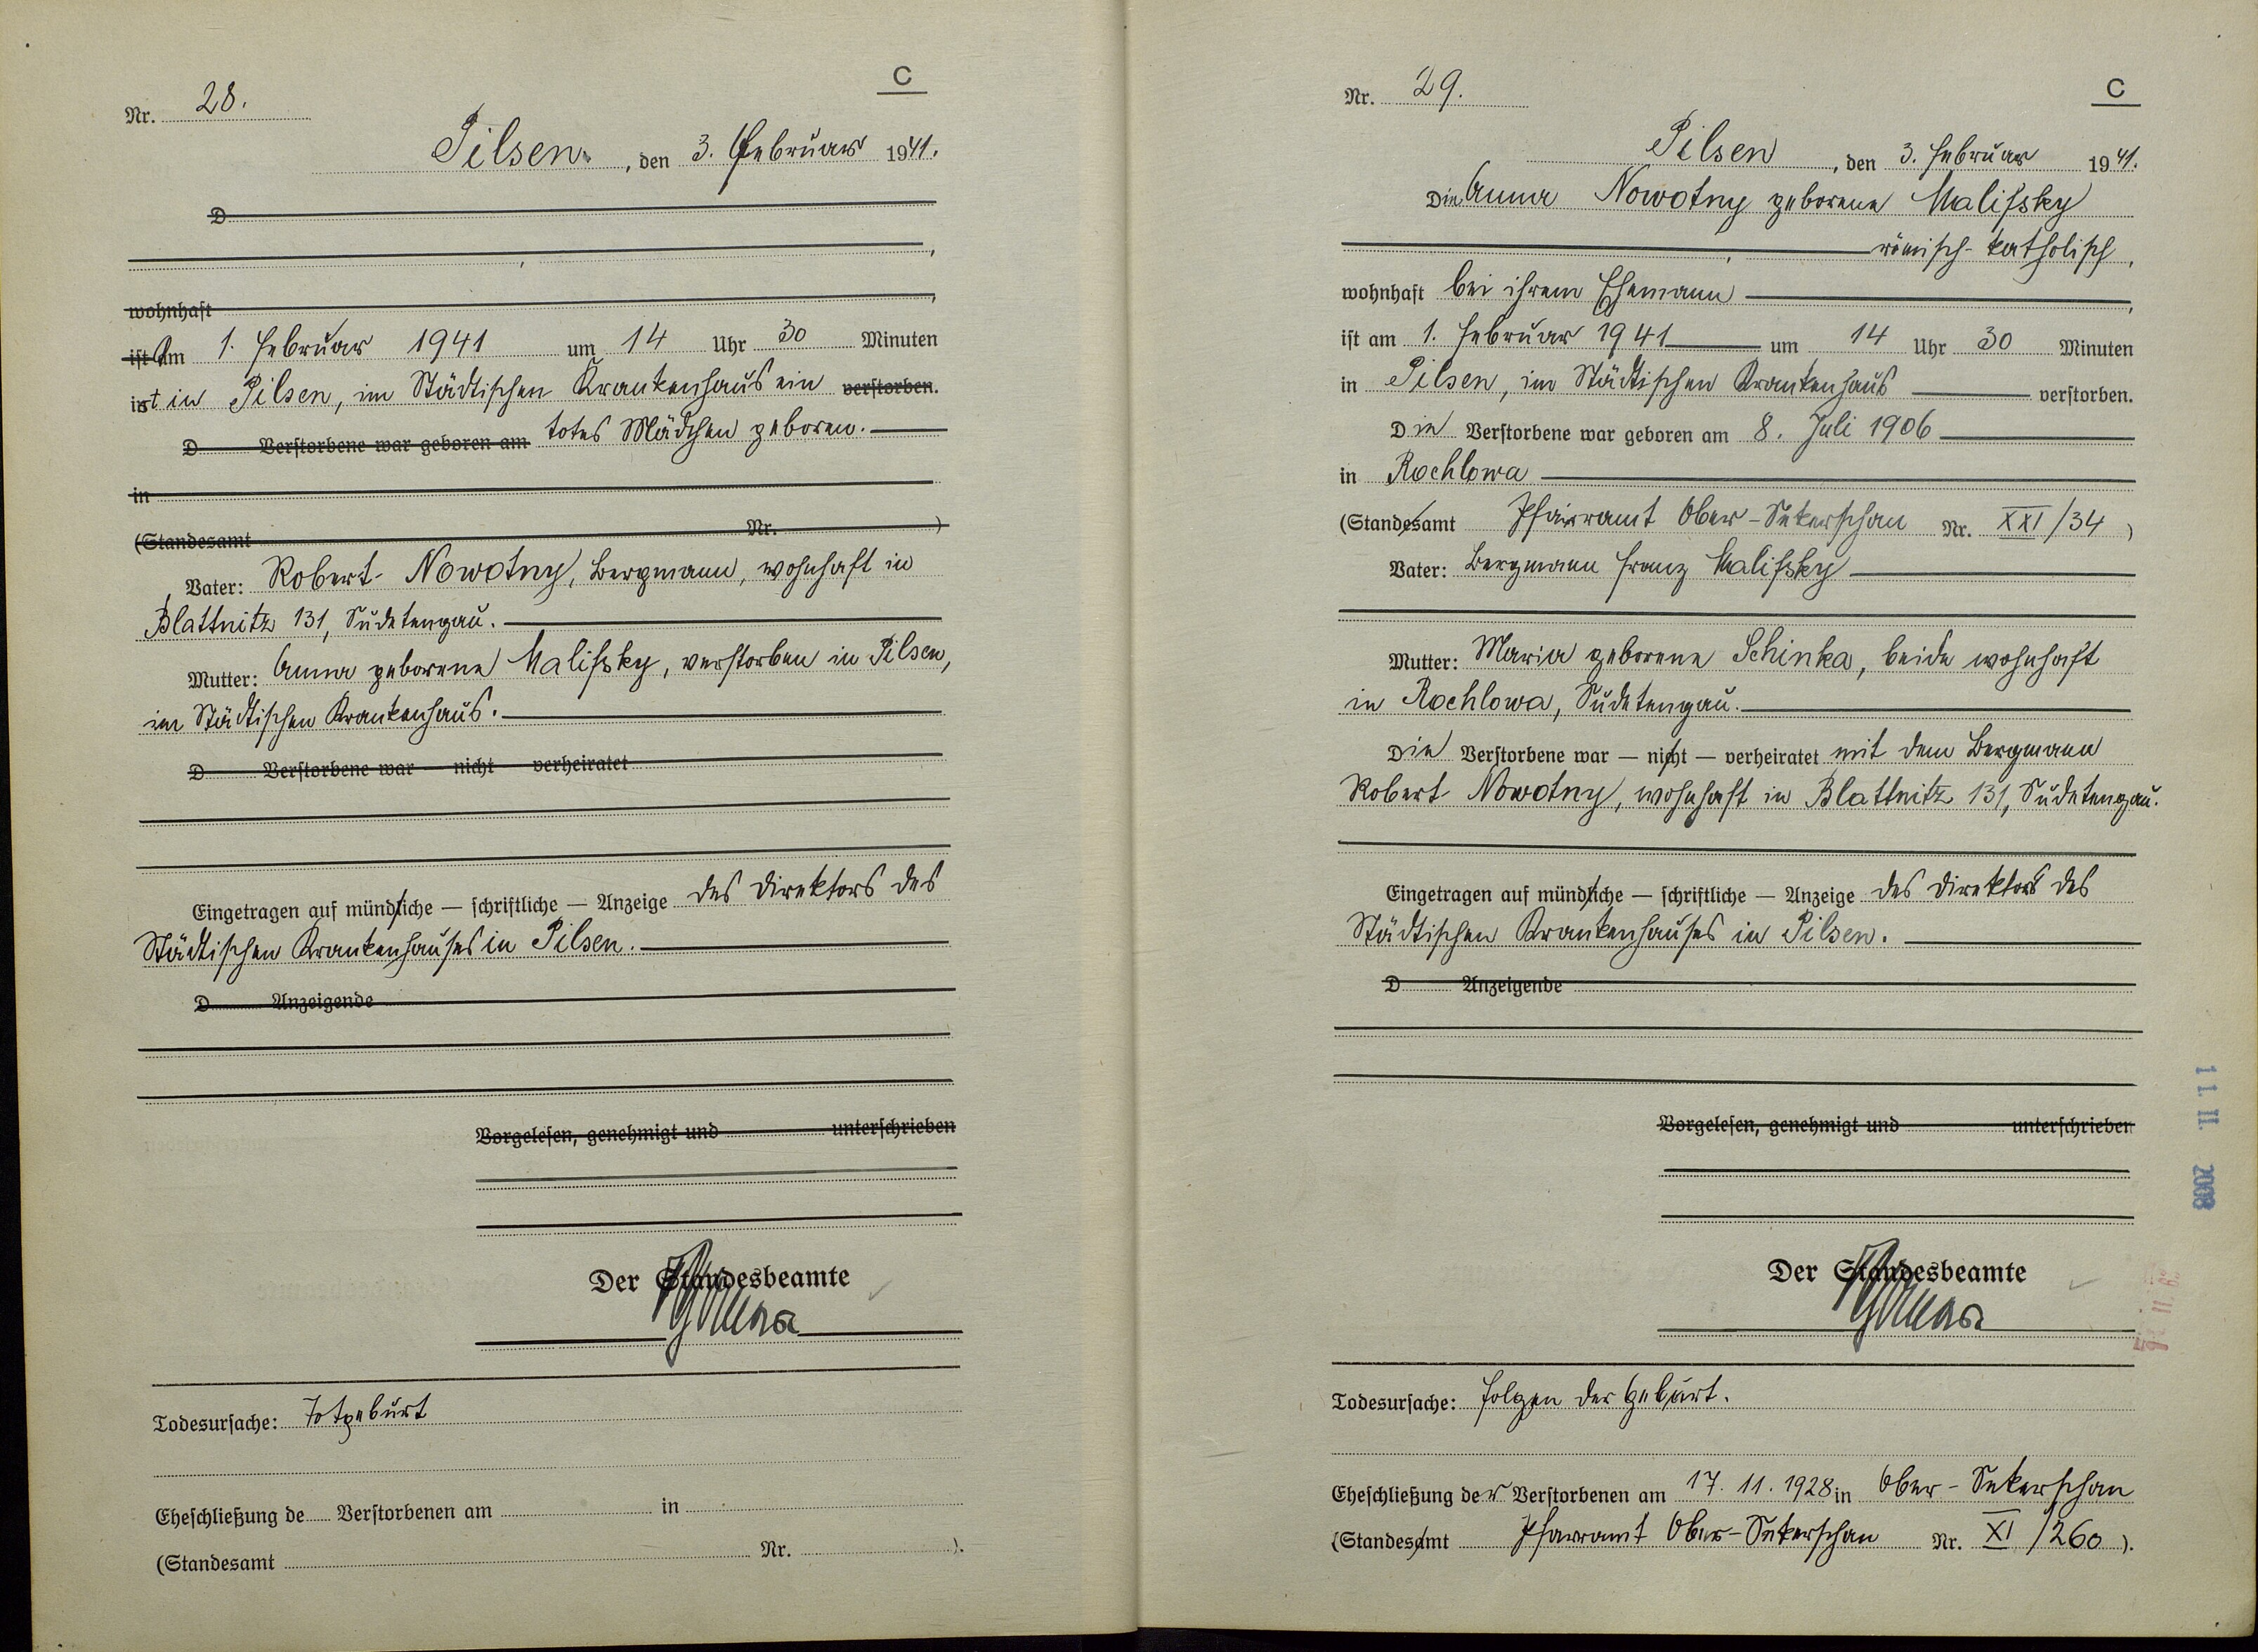 C
Nr. 28.
Pilsen, den 3. Februar 1941.
D
wohnhaft
ist Am 1. Februar 1941 um 14 Uhr 30 Minuten
ist in Pilsen, im Städtischen Krankenhaus ein verstorben.
D Verstorbene war geboren am totes Mädchen geboren.
in
(Standesamt Nr. )
Vater: Robert Nowotny, Bergmann, wohnhaft in
Blattnitz 131, Sudetengau.
Mutter: Anna geborene Malissky, verstorben in Pilsen,
im Städtischen Krankenhaus.
D Verstorbene war — nicht — verheiratet
Eingetragen auf mündliche — schriftliche — Anzeige des Direktors des
Städtischen Krankenhauses in Pilsen.
D Anzeigende
Vorgelesen, genehmigt und unterschrieben
Der Standesbeamte
Todesursache: Totgeburt
Eheschließung de Verstorbenen am in
(Standesamt Nr. ).
C
Nr. 29.
Pilsen, den 3. Februar 1941.
Die Anna Nowotny geborene Malissky
römisch-katholisch,
wohnhaft bei ihrem Ehemann,
ist am 1. Februar 1941 um 14 Uhr 30 Minuten
in Pilsen, im Städtischen Krankenhaus verstorben.
Die Verstorbene war geboren am 8. Juli 1906
in Rochlowa
(Standesamt Pfarramt Ober-Sekerschan Nr. XXI/34 )
Vater: Bergmann Franz Malissky
Mutter: Maria geborene Schinka, beide wohnhaft
in Rochlowa, Sudetengau.
Die Verstorbene war — nicht — verheiratet mit dem Bergmann
Robert Nowotny, wohnhaft in Blattnitz 131, Sudetengau.
Eingetragen auf mündliche — schriftliche — Anzeige des Direktors des
Städtischen Krankenhauses in Pilsen.
D Anzeigende
Vorgelesen, genehmigt und unterschrieben
Der Standesbeamte
Todesursache: Folgen der Geburt.
Eheschließung der Verstorbenen am 17. 11. 1928 in Ober-Sekerschan
(Standesamt Pfarramt Ober-Sekerschan Nr. XI/260 ).
11. II. 2008